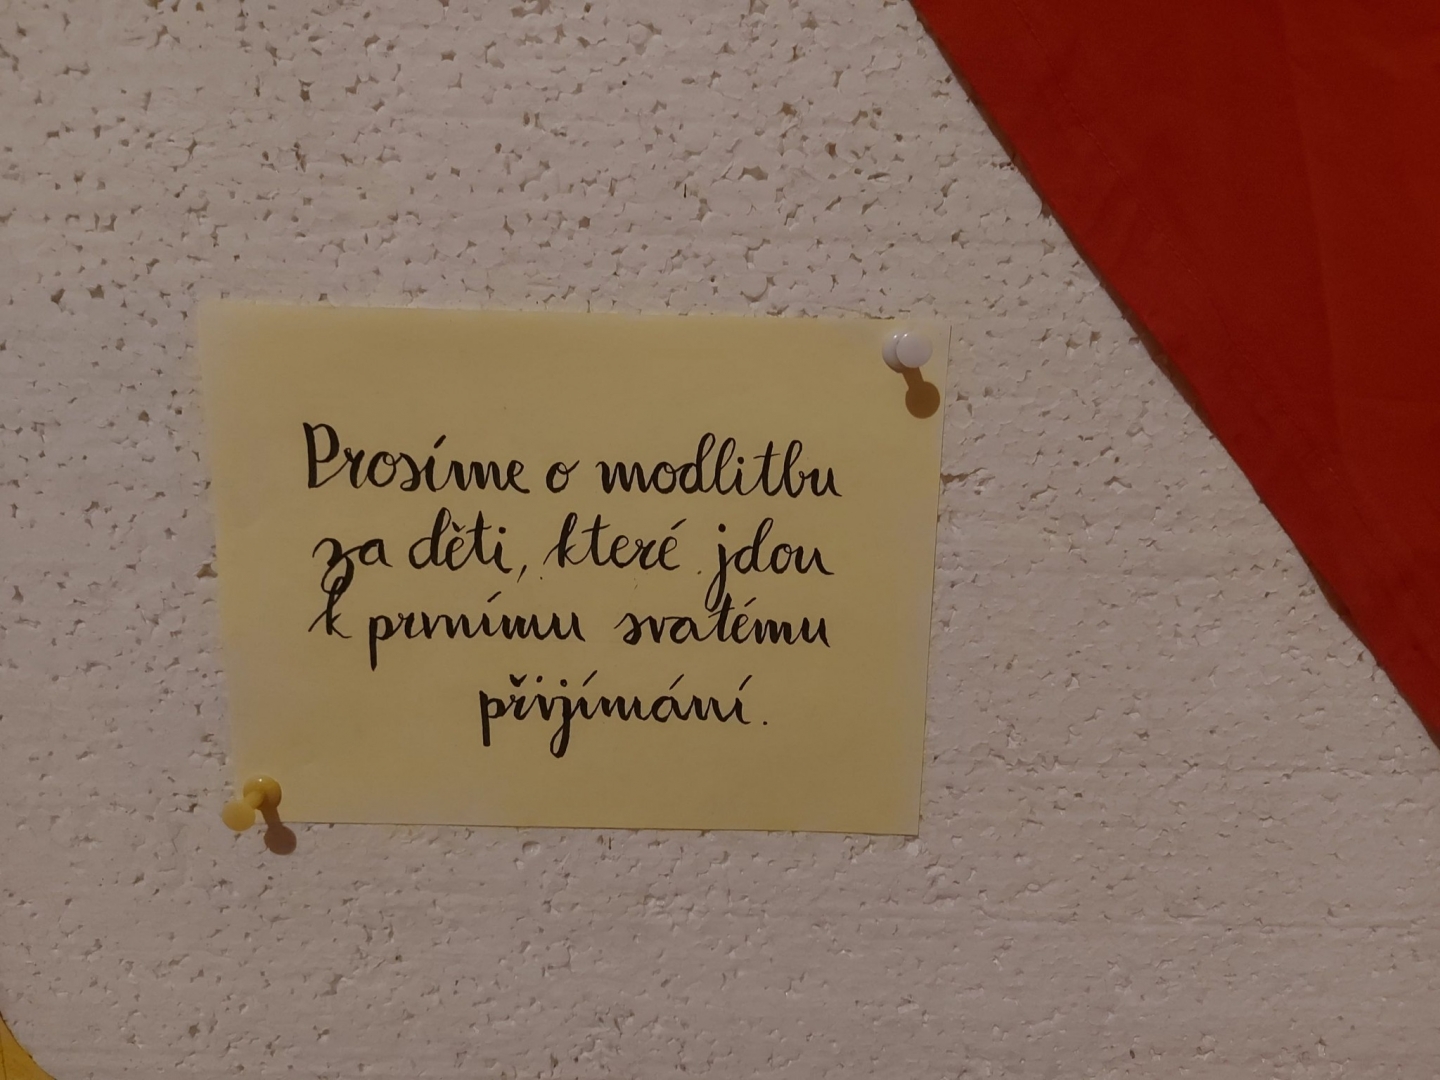 Prosíme o modlitbu
za děti, které jdou
k prvnímu svatému
přijímání.